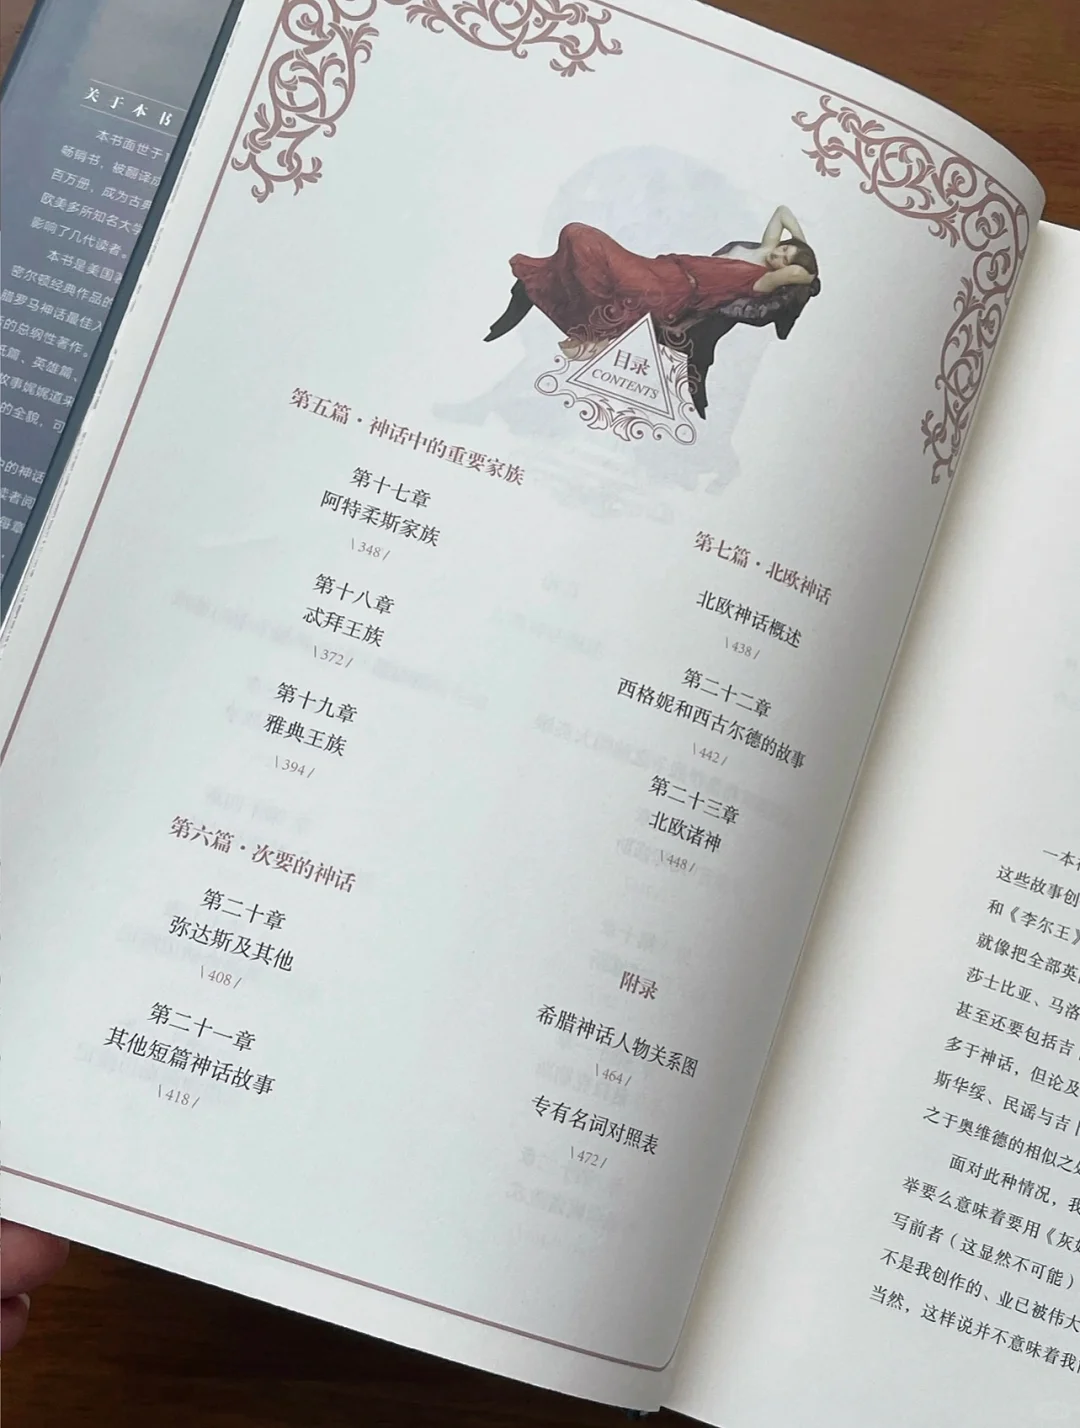 关于本书
本书面世于
畅销书，被翻译成
百万册，成为古典
欧美多所知名大学
影响了几代读者。
本书是美国著
密尔顿经典作品的
腊罗马神话最佳入
的总纲性著作。
篇、英雄篇、
故事娓娓道来
的全貌，可
中的神话
读者阅
每章
目录
CONTENTS
第五篇·神话中的重要家族
第十七章
阿特柔斯家族
\348/
第十八章
忒拜王族
\372/
第十九章
雅典王族
\394/
第六篇·次要的神话
第二十章
弥达斯及其他
\408/
第二十一章
其他短篇神话故事
\418/
第七篇·北欧神话
北欧神话概述
\438/
第二十二章
西格妮和西古尔德的故事
\442/
第二十三章
北欧诸神
\448/
附录
希腊神话人物关系图
\464/
专有名词对照表
\472/
一本
这些故事创
和《李尔王》
就像把全部英
莎士比亚、马洛
甚至还要包括吉
多于神话，但论及
斯华绥、民谣与吉卜
之于奥维德的相似之处
面对此种情况，我
举要么意味着要用《灰姑
写前者（这显然不可能）
不是我创作的、业已被伟大
当然，这样说并不意味着我